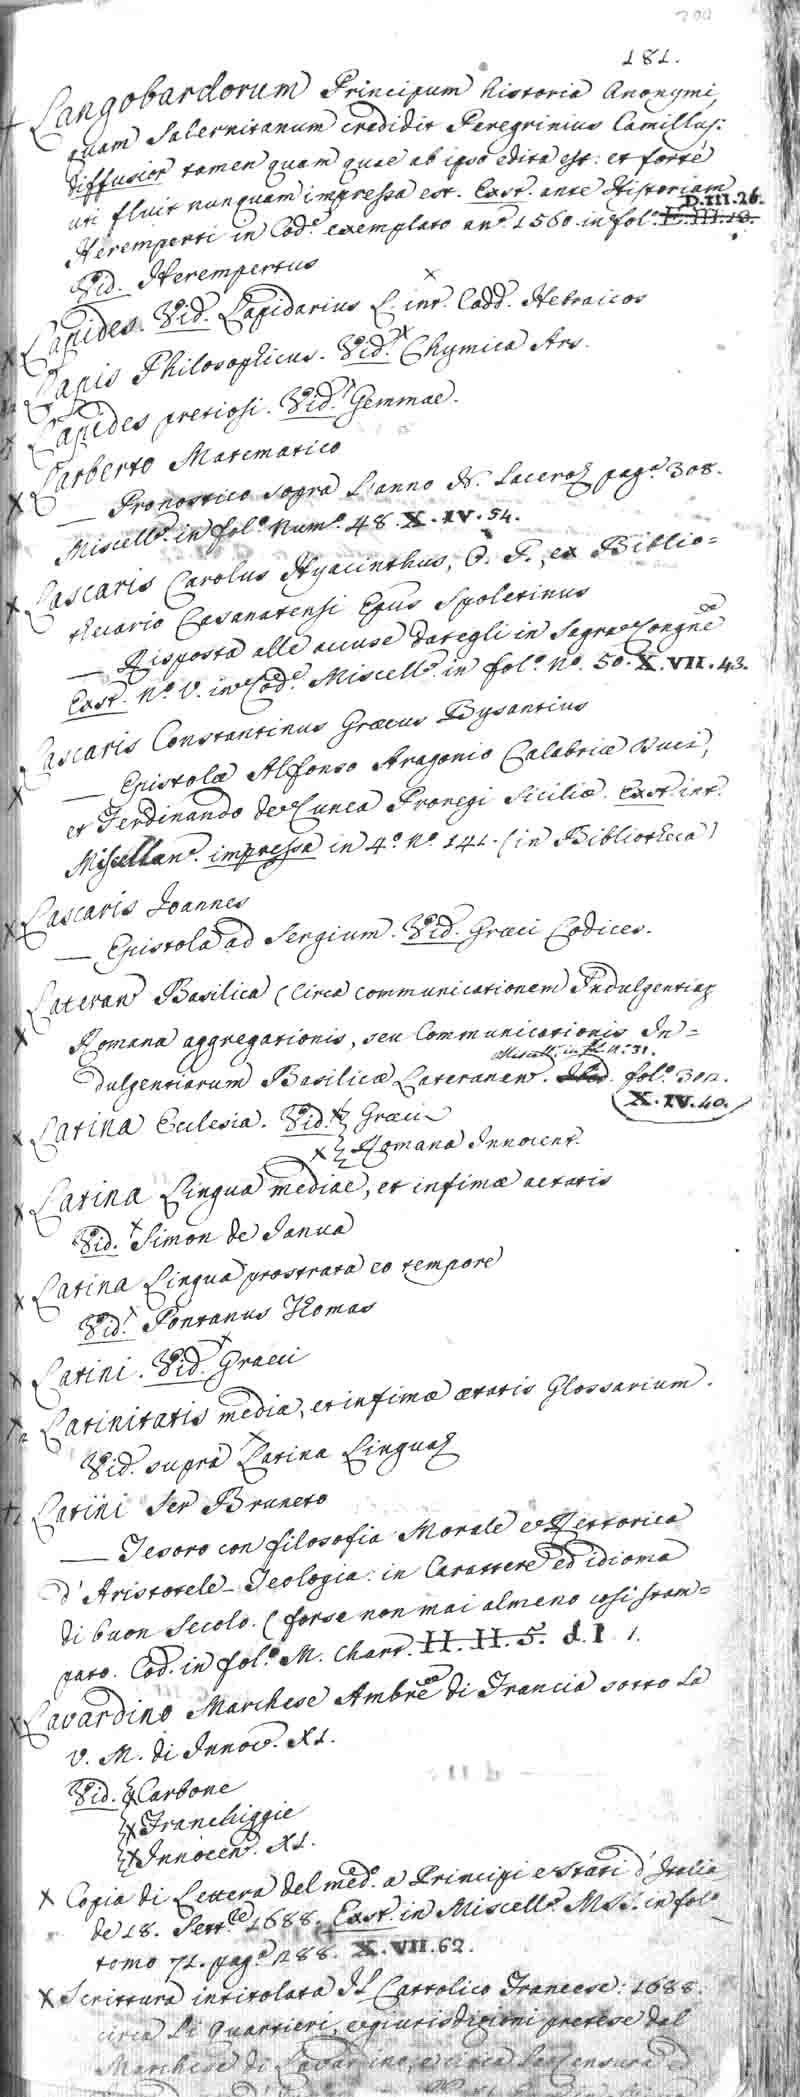 181.
Langobardorum Principum historia Anonymi,
quam Salernitanum credidit Peregrinius Camillus:
diffusior tamen quam quae ab ipso edita est: et forte
uti fluit nunquam impressa est. Exst. ante Historiam
Heremperti in Cod.e exemplato an.o 1560. in fol.o E.III.18. D.III.26.
Vid. Herempertus
Lapides. Vid. Lapidarius L. int. Codd. Hebraicos
Lapis Philosophicus. Vid. Chymica Ars.
Lapides pretiosi. Vid. Gemmae.
Larberto Matematico
— Pronostico sopra L'anno pag.a 308.
Miscell.o in fol.o Num.o 48. X.IV.54.
Lascaris Carolus Hyacinthus, O. P., ex Biblio=
thecario Casanatensi Epus Spoletinus
— Risposta alle accuse dategli in Sagra Congne
Exst. N.o V. in Cod.e Miscell.o in fol.o N.o 50. X.VII.43.
Lascaris Constantinus Graecus Bysantius
— Epistolae Alfonso Aragonio Calabriae Duci,
et Ferdinando de Cunea Proregi Siciliae. Exst. int.
Miscellan.o impressa in 4.o N.o 141. (in Bibliotheca)
Lascaris Joannes
— Epistola ad Sergium. Vid. Graeci Codices.
Lateran Basilica (Circa communicationem Indulgentiar
Romana aggregationis, seu Communicationis In=
Miscell. in fol. n.o 31.
dulgentiarum Basilicae Lateranen. Ibid. fol.o 302.
X.IV.40.
Latina Ecclesia. Vid. Graeci
Romana Innocent.
Latina Lingua mediae, et infimae aetatis
Vid. Simon de Janua
Latina Lingua prostrata eo tempore
Vid. Pontanus Thomas
Latini. Vid. Graeci
Latinitatis media, et infimae aetatis Glossarium.
Vid. supra Latina Lingua
Latini Ser Bruneto
— Tesoro con filosofia Morale e Rettorica
d'Aristotele - Teologia: in Carattere ed idioma
di buon Secolo. (forse non mai almeno così stam=
pato. Cod. in fol.o M. Chart. H.H.5. d.I.1.
Lavardino Marchese Ambre di Francia sotto La
v. M. di Innoc. XI.
Vid. Carbone
Franchiggie
Innocen. XI.
Copia di Lettera del med.o a Principi e Stati d'Italia
de 18. Sett.e 1688. Exst. in Miscell.o MSS. in fol.o
tomo 71. pag.a 288. X.VII.62.
Scrittura intitolata Il Cattolico Francese: 1688.
circa Li Quartieri, e giurisdizioni pretese dal
Marchese di Lavardino, e circa La Censura